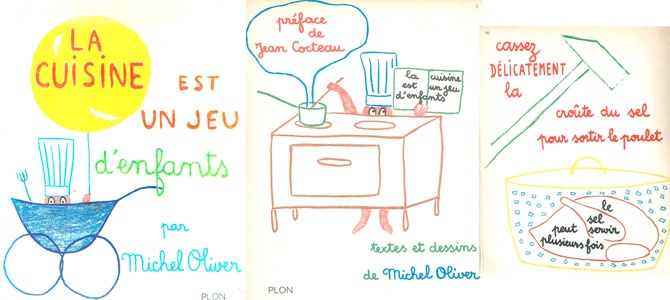 LA
CUISINE
EST
UN JEU
d'enfants
par
Michel Oliver
PLON
3
préface
de
Jean Cocteau
la cuisine
est un jeu
d'enfants
textes et dessins
de Michel Oliver
PLON
cassez
DÉLICATEMENT
la
croûte du sel
pour sortir le poulet
le
sel
peut servir
plusieurs fois